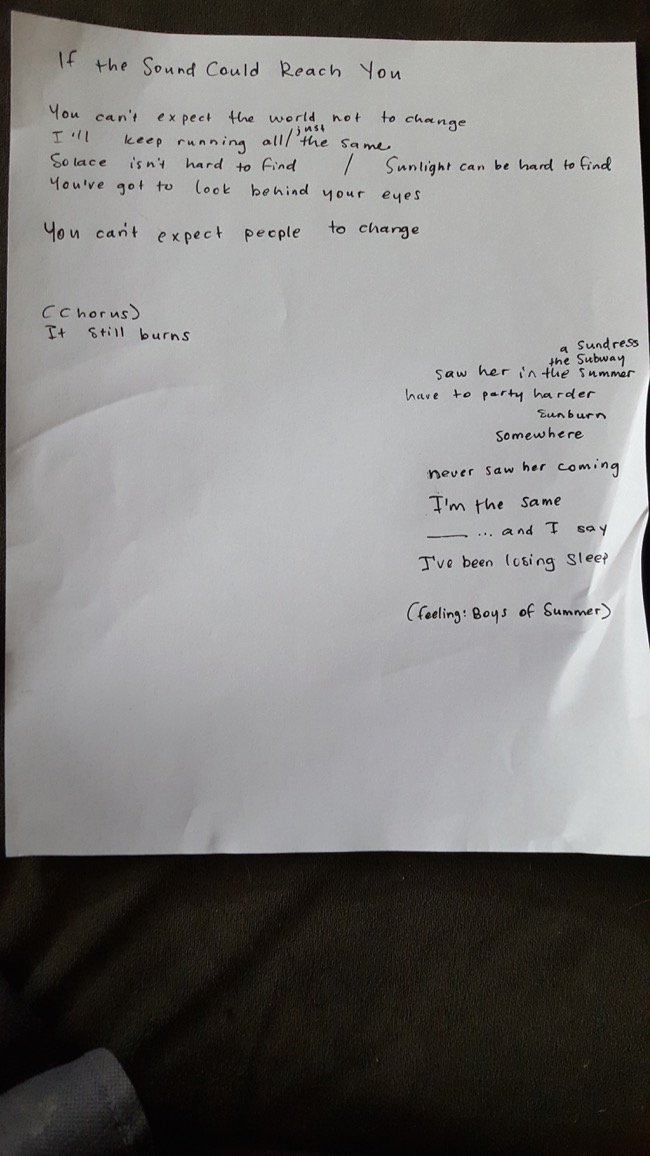 If the Sound Could Reach You
You can't expect the world not to change
just
I'll keep running all/the same
Solace isn't hard to find / Sunlight can be hard to find
You've got to look behind your eyes
You can't expect people to change
(Chorus)
It still burns
a Sundress
the Subway
saw her in the Summer
have to party harder
Sunburn
Somewhere
never saw her coming
I'm the same
___ ... and I say
I've been losing Sleep
(feeling: Boys of Summer)